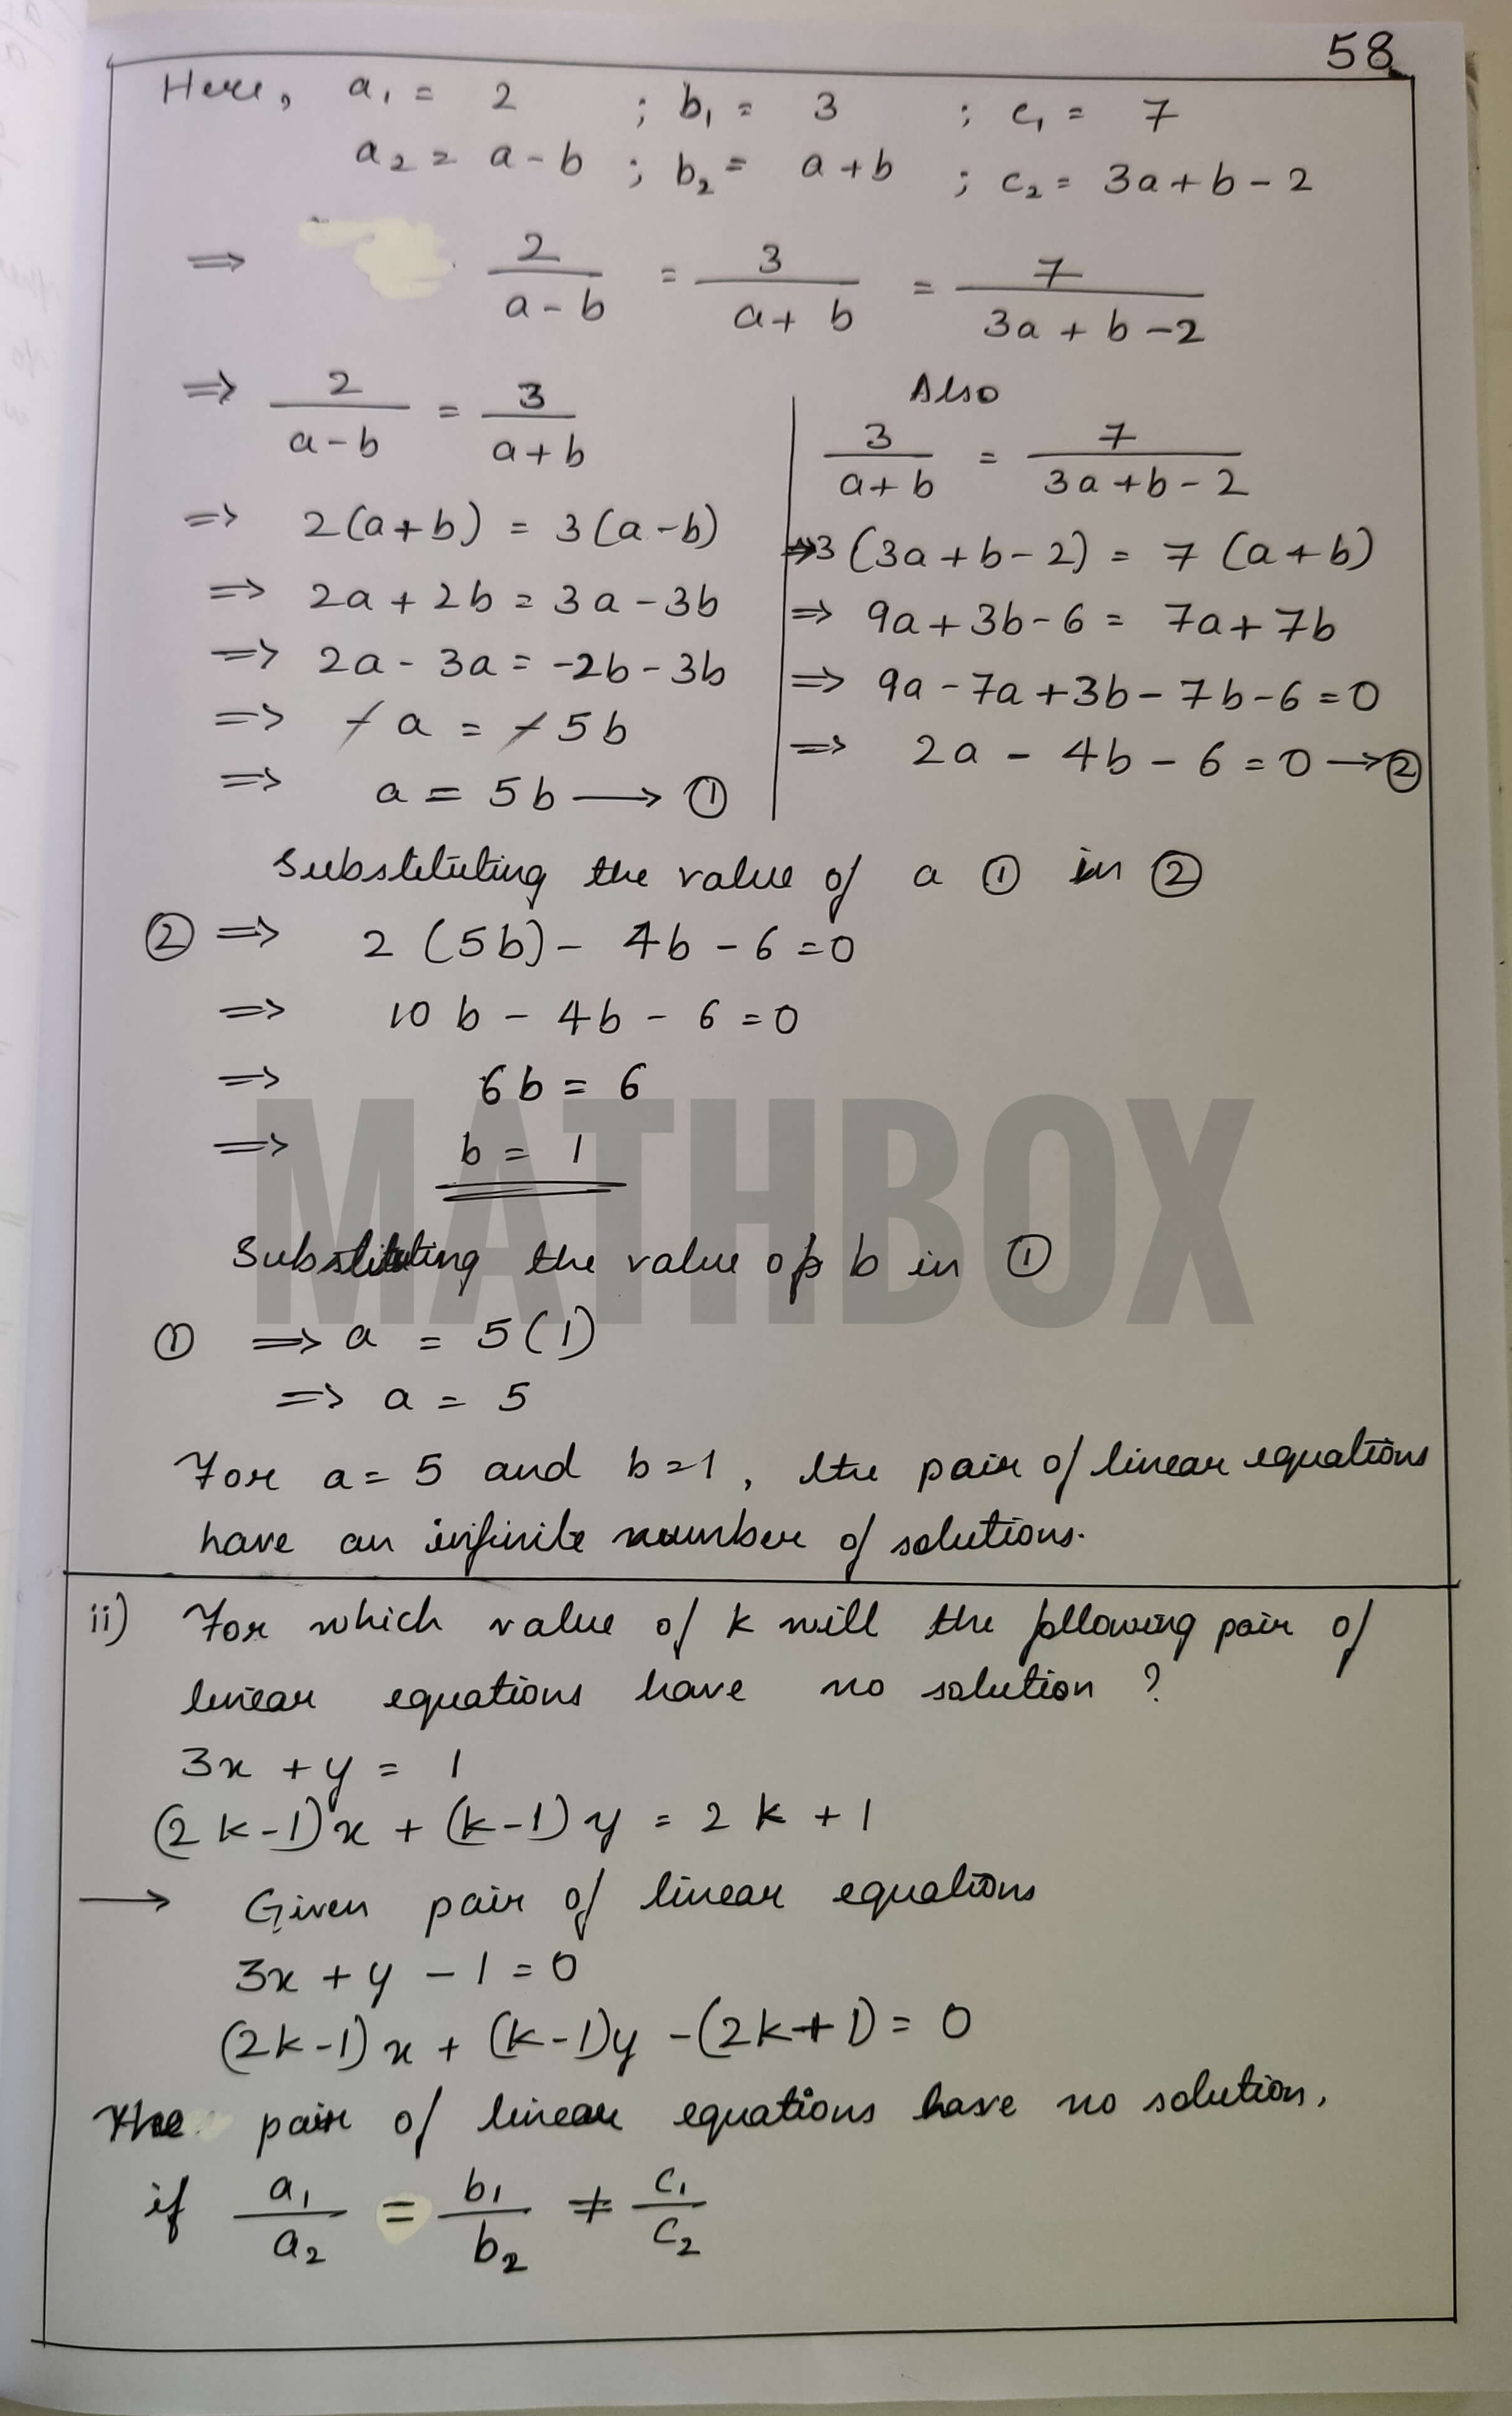 58
Here, a₁ = 2 ; b₁ = 3 ; c₁ = 7
a₂ = a - b ; b₂ = a + b ; c₂ = 3a + b - 2
⇒ 2/(a - b) = 3/(a + b) = 7/(3a + b - 2)
⇒ 2/(a - b) = 3/(a + b)
⇒ 2(a + b) = 3(a - b)
⇒ 2a + 2b = 3a - 3b
⇒ 2a - 3a = -2b - 3b
⇒ - a = - 5b
⇒ a = 5b → ①
Also
3/(a + b) = 7/(3a + b - 2)
⇒ 3(3a + b - 2) = 7(a + b)
⇒ 9a + 3b - 6 = 7a + 7b
⇒ 9a - 7a + 3b - 7b - 6 = 0
⇒ 2a - 4b - 6 = 0 → ②
Substituting the value of a ① in ②
② ⇒ 2(5b) - 4b - 6 = 0
⇒ 10b - 4b - 6 = 0
⇒ 6b = 6
⇒ b = 1
MATHBOX
Substituting the value of b in ①
① ⇒ a = 5(1)
⇒ a = 5
For a = 5 and b = 1, the pair of linear equations
have an infinite number of solutions.
ii) For which value of k will the following pair of
linear equations have no solution ?
3x + y = 1
(2k-1)x + (k-1)y = 2k + 1
→ Given pair of linear equations
3x + y - 1 = 0
(2k-1)x + (k-1)y - (2k+1) = 0
The pair of linear equations have no solution,
if a₁/a₂ = b₁/b₂ ≠ c₁/c₂